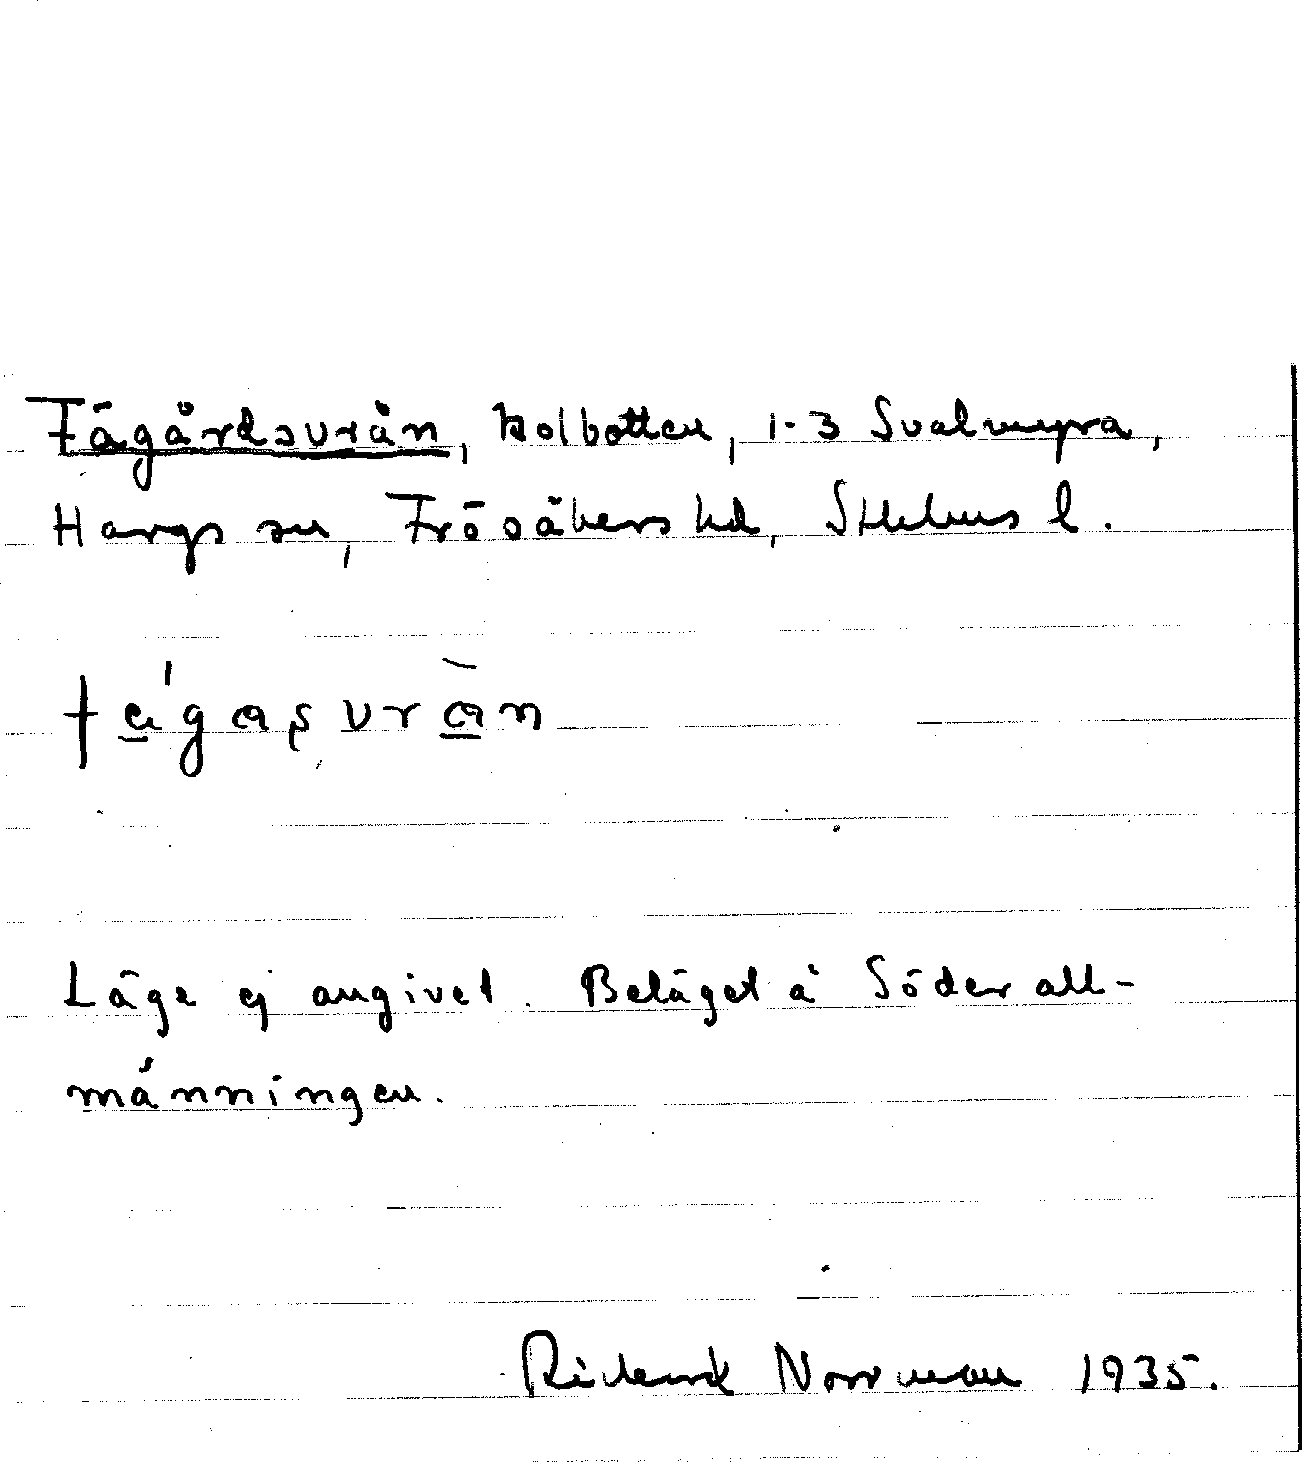 Fägårdsvrån, kolbotten, 1-3 Svalmyra,
Hargs sn, Frösåkers hd, Sthlms l.
Läge ej angivet. Beläget å Söder all-
männingen.
Rickard Norrman 1935.